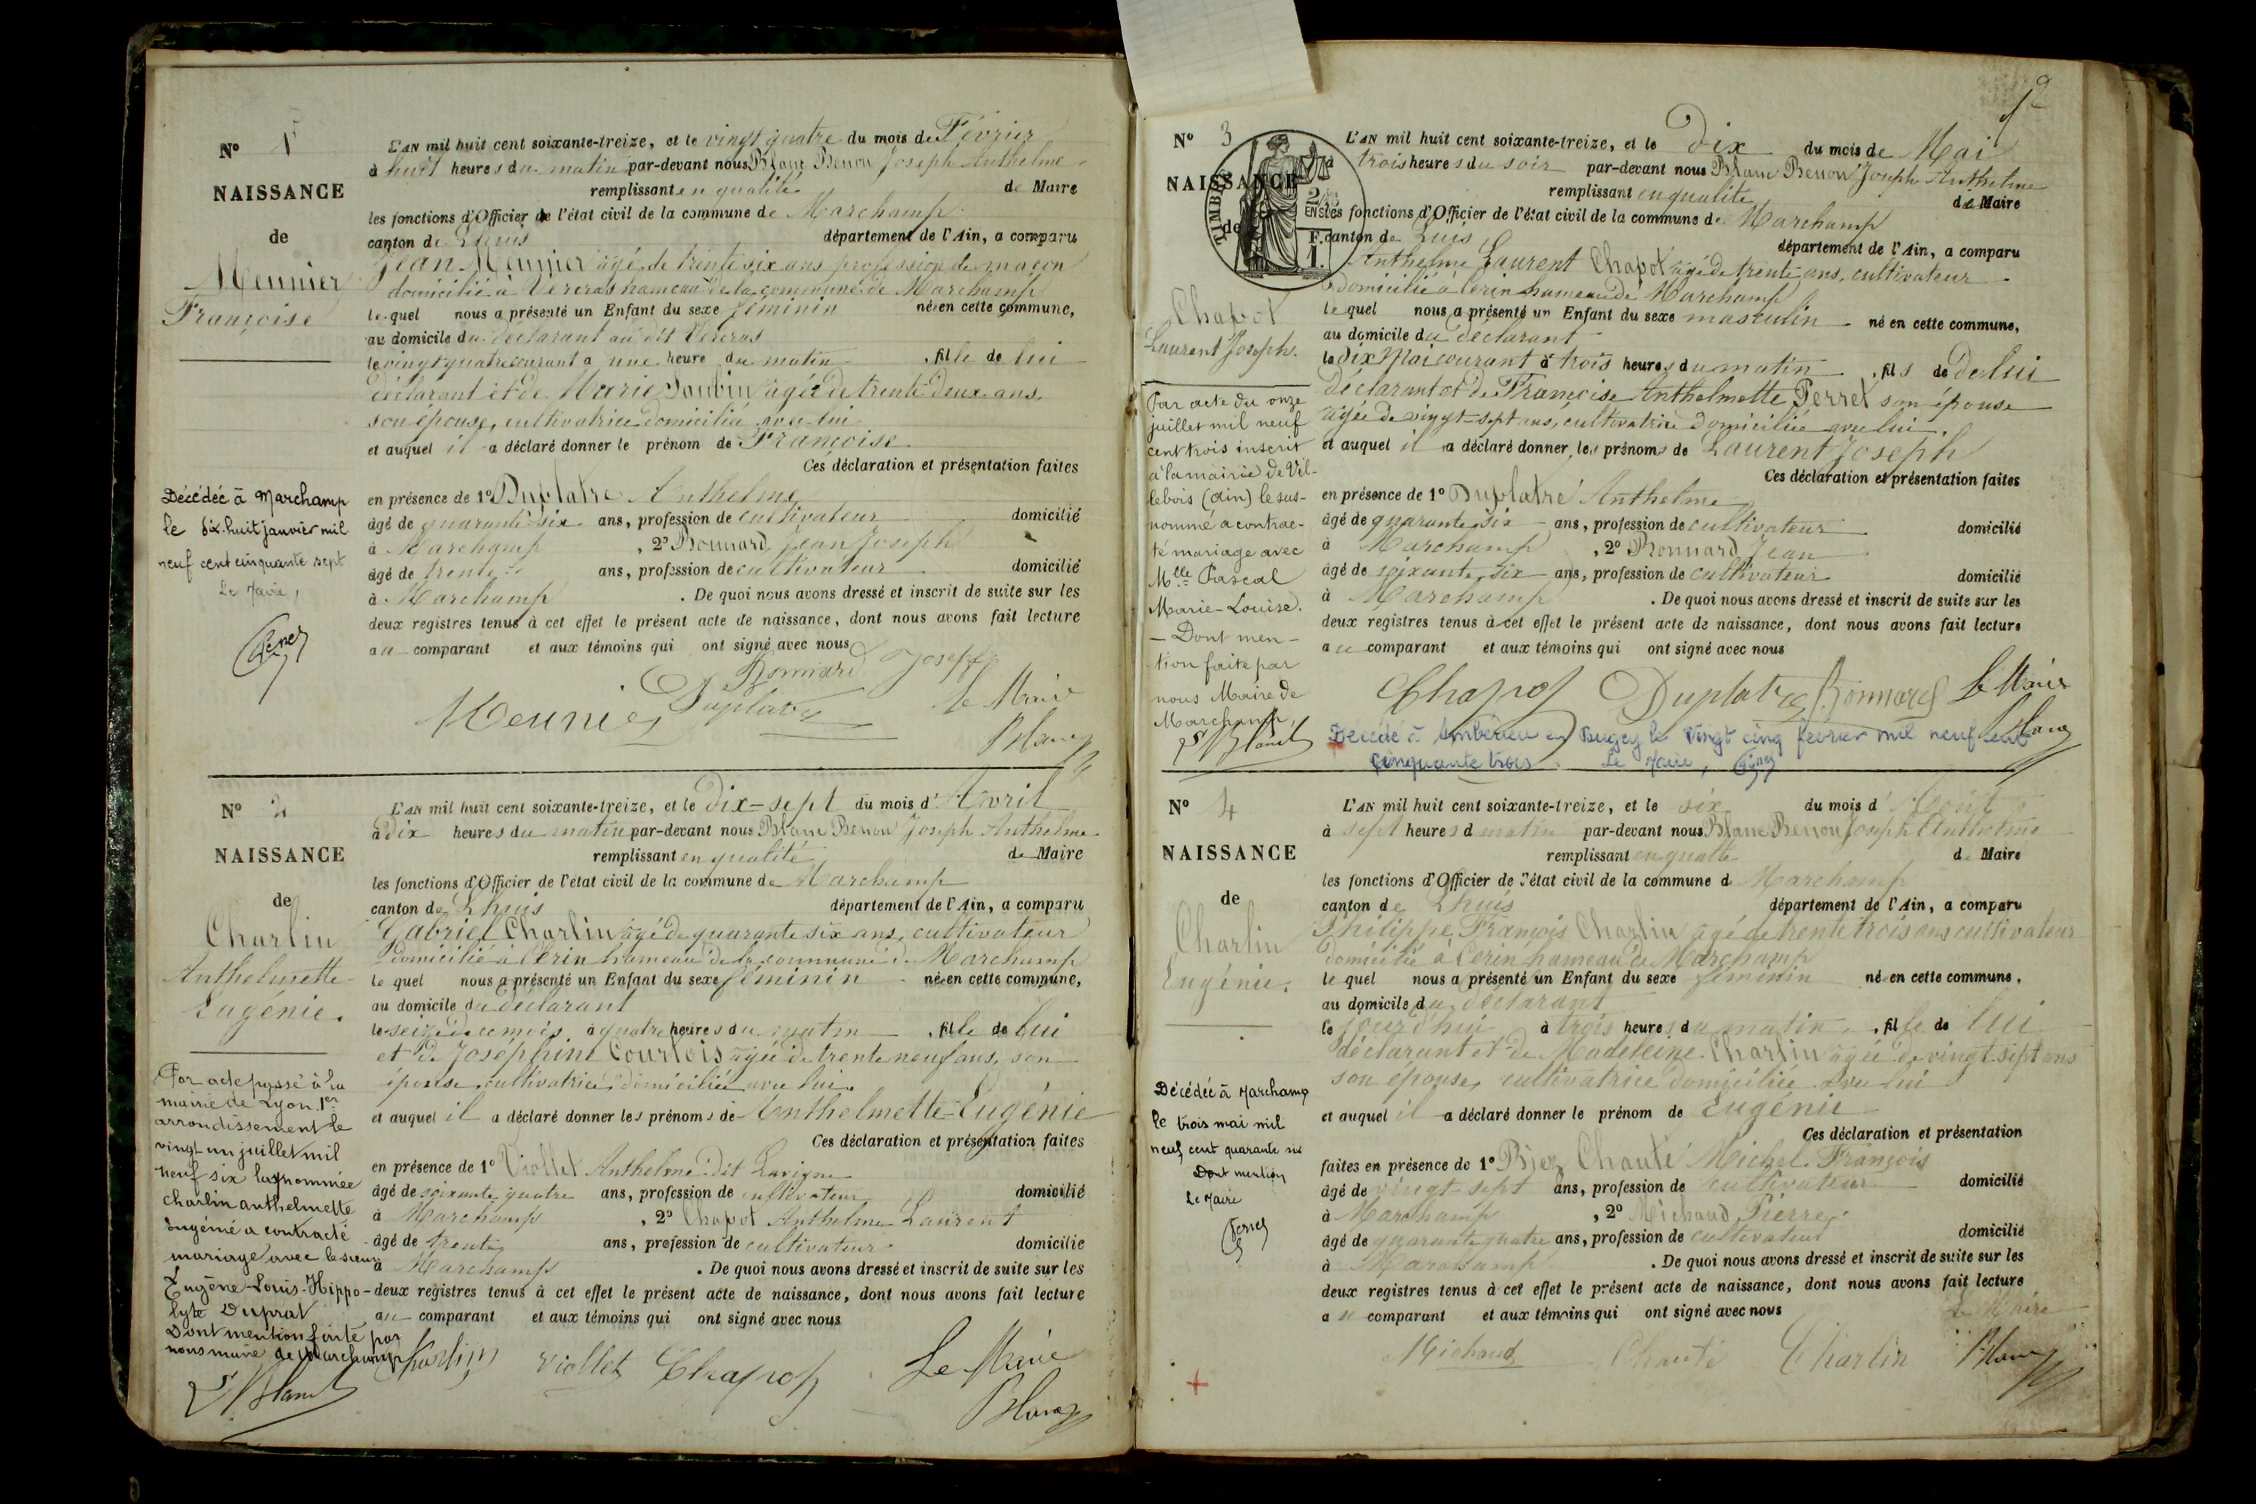 Nº 1
NAISSANCE
de
Meunier
Françoise
L'AN mil huit cent soixante-treize, et le vingt quatre du mois de Février
à huit heures du matin par-devant nous Blanc Benon Joseph Anthelme
remplissant en qualité de Maire
les fonctions d'Officier de l'état civil de la commune de Marchamp
canton de Lhuis département de l'Ain, a comparu
Jean Meunier âgé de trente six ans profession de maçon
domicilié à Vercras hameau de la commune de Marchamp
lequel nous a présenté un Enfant du sexe féminin née en cette commune,
au domicile du déclarant au dit Vercras
le vingt quatre courant à une heure du matin, fille de lui
déclarant et de Marie âgée de trente deux ans
son épouse, cultivatrice domiciliée avec lui
et auquel il a déclaré donner le prénom de Françoise
Ces déclaration et présentation faites
en présence de 1º Duplatre Anthelme
âgé de quarante six ans, profession de cultivateur domicilié
à Marchamp, 2º Bonnard Jean Joseph
âgé de trente ans, profession de cultivateur domicilié
à Marchamp. De quoi nous avons dressé et inscrit de suite sur les
deux registres tenus à cet effet le présent acte de naissance, dont nous avons fait lecture
au comparant et aux témoins qui ont signé avec nous
Bonnard Joseph
Meunier Duplatre le Maire
Blanc
Décédée à Marchamp
le dix-huit janvier mil
neuf cent cinquante sept
Le Maire,
Nº 2
NAISSANCE
de
Charlin
Anthelmette
Eugénie.
L'AN mil huit cent soixante-treize, et le dix-sept du mois d'Avril
à dix heures du matin par-devant nous Blanc Benon Joseph Anthelme
remplissant en qualité de Maire
les fonctions d'Officier de l'état civil de la commune de Marchamp
canton de Lhuis département de l'Ain, a comparu
Gabriel Charlin âgé de quarante six ans, cultivateur
domicilié à Cerin hameau de la commune de Marchamp
lequel nous a présenté un Enfant du sexe féminin née en cette commune,
au domicile du déclarant
le seize de ce mois à quatre heures du matin, fille de lui
et de Joséphine Courtois âgée de trente neuf ans, son
épouse, cultivatrice domiciliée avec lui.
et auquel il a déclaré donner les prénoms de Anthelmette-Eugénie
Ces déclaration et présentation faites
en présence de 1º Viollet Anthelme dit Lavigne
âgé de soixante quatre ans, profession de cultivateur domicilié
à Marchamp, 2º Chapot Anthelme Laurent
âgé de trente ans, profession de cultivateur domicilié
à Marchamp. De quoi nous avons dressé et inscrit de suite sur les
deux registres tenus à cet effet le présent acte de naissance, dont nous avons fait lecture
au comparant et aux témoins qui ont signé avec nous
Charlin Viollet Chapot Le Maire
Blanc
Par acte passé à la
mairie de Lyon 1er
arrondissement le
vingt un juillet mil
neuf six la nommée
Charlin anthelmette
Eugénie a contracté
mariage avec le sieur
Eugène-Louis-Hippo-
lyte Duprat
Dont mention faite par
nous maire de Marchamp
Blanc
2
Nº 3
NAISSANCE
de
Chapot
Laurent Joseph.
TIMBRE
L'AN mil huit cent soixante-treize, et le Dix du mois de Mai
à trois heures du soir par-devant nous Blanc Benon Joseph Anthelme
remplissant en qualité de Maire
les fonctions d'Officier de l'état civil de la commune de Marchamp
canton de Luis département de l'Ain, a comparu
Anthelme Laurent Chapot âgé de trente ans, cultivateur
domicilié à Cerin hameau de Marchamp
lequel nous a présenté un Enfant du sexe masculin né en cette commune,
au domicile du déclarant
le dix Mai courant à trois heures du matin, fils de de lui
déclarant et de Françoise Anthelmette Perret son épouse
âgée de vingt-sept ans, cultivatrice domiciliée avec lui.
et auquel il a déclaré donner les prénoms de Laurent Joseph
Ces déclaration et présentation faites
en présence de 1º Duplatre Anthelme
âgé de quarante six ans, profession de cultivateur domicilié
à Marchamp, 2º Bonnard Jean
âgé de soixante six ans, profession de cultivateur domicilié
à Marchamp. De quoi nous avons dressé et inscrit de suite sur les
deux registres tenus à cet effet le présent acte de naissance, dont nous avons fait lecture
au comparant et aux témoins qui ont signé avec nous
Chapot Duplatre Bonnard Le Maire
Blanc
Décédé à Ambérieu en Bugey le vingt cinq février mil neuf cent
cinquante trois. Le Maire,
Par acte du onze
juillet mil neuf
cent trois inscrit
à la mairie de Vil-
lebois (Ain) le sus-
nommé a contrac-
té mariage avec
Mlle Pascal
Marie-Louise.
— Dont men-
tion faite par
nous Maire de
Marchamp,
Blanc
Nº 4
NAISSANCE
de
Charlin
Eugénie.
L'AN mil huit cent soixante-treize, et le six du mois d'Août
à sept heures d matin par-devant nous Blanc Benon Joseph Anthelme
remplissant en qualité de Maire
les fonctions d'Officier de l'état civil de la commune d Marchamp
canton de Lhuis département de l'Ain, a comparu
Philippe François Charlin âgé de trente trois ans cultivateur
domicilié à Cerin hameau de Marchamp
lequel nous a présenté un Enfant du sexe féminin née en cette commune,
au domicile du déclarant
le jourd'hui à trois heures du matin, fille de lui
déclarant et de Madeleine Charlin âgée de vingt sept ans
son épouse, cultivatrice domiciliée avec lui
et auquel il a déclaré donner le prénom de Eugénie
Ces déclaration et présentation
faites en présence de 1º Chanté Michel François
âgé de vingt sept ans, profession de cultivateur domicilié
à Marchamp, 2º Michaud Pierre
âgé de quarante quatre ans, profession de cultivateur domicilié
à Marchamp. De quoi nous avons dressé et inscrit de suite sur les
deux registres tenus à cet effet le présent acte de naissance, dont nous avons fait lecture
au comparant et aux témoins qui ont signé avec nous
Le Maire
Michaud Chanté Charlin Blanc
Décédée à Marchamp
le trois mai mil
neuf cent quarante six
Dont mention
Le Maire